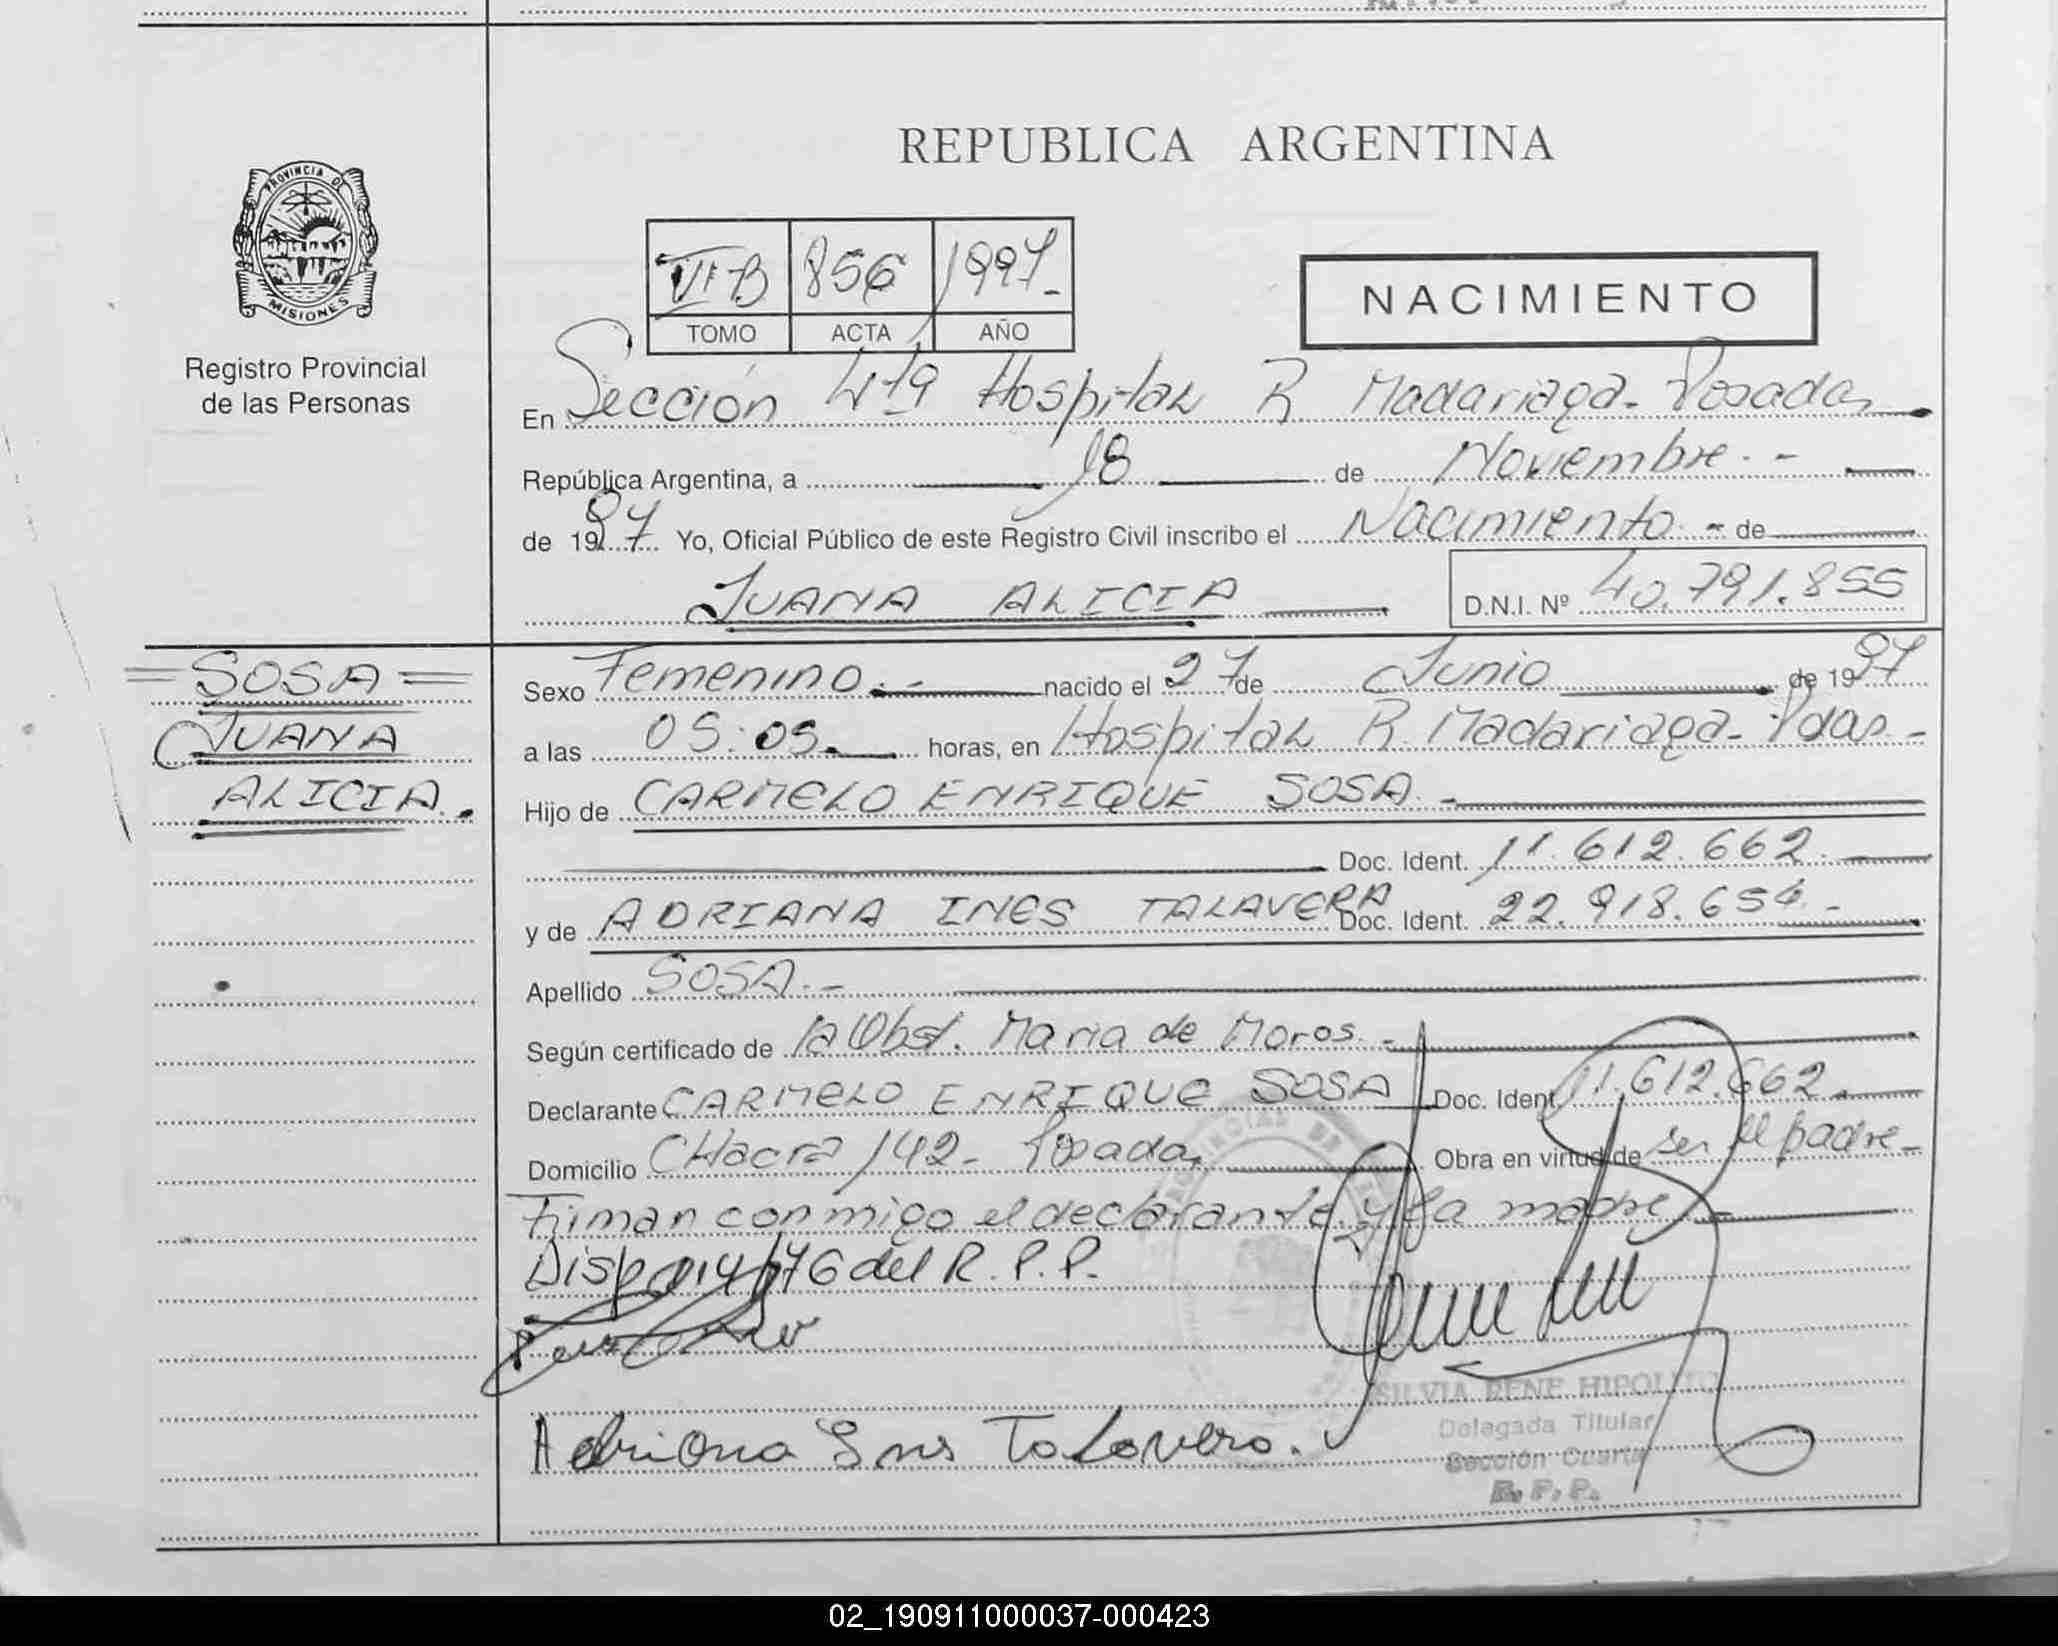 REPUBLICA ARGENTINA
PROVINCIA D
MISIONES
Registro Provincial
de las Personas
VI-B 856 1997.-
TOMO ACTA AÑO
NACIMIENTO
En Sección 4ta Hospital R Madariaga - Posadas
República Argentina, a 18 de Noviembre.-
de 1997 Yo, Oficial Público de este Registro Civil inscribo el Nacimiento.- de
JUANA ALICIA D.N.I. Nº 40.791.855
=SOSA=
JUANA
ALICIA.
Sexo Femenino.- nacido el 27 de Junio de 1997
a las 05:05 horas, en Hospital R. Madariaga - Pdas.-
Hijo de CARMELO ENRIQUE SOSA.-
Doc. Ident. 11.612.662.-
y de ADRIANA INES TALAVERA Doc. Ident. 22.918.654.-
Apellido SOSA.-
Según certificado de la Obst. Maria de Moros.-
Declarante CARMELO ENRIQUE SOSA Doc. Ident. 11.612.662.-
Domicilio CHacra 142 - Posadas Obra en virtud de ser el padre-
Firman conmigo el declarante y la madre.-
Disp. 014/76 del R.P.P.-
Adriana Ines Talavera.
SILVIA RENE HIPOLITO
Delegada Titular
Sección Cuarta
R. P. P.
02_190911000037-000423